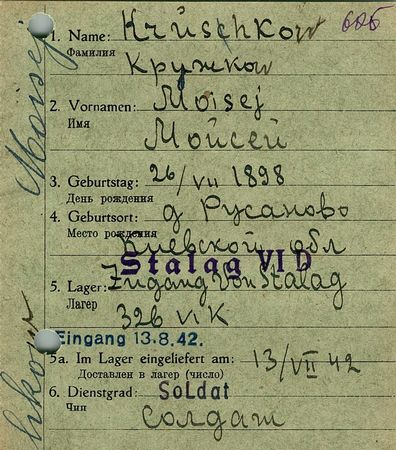 686
1. Name: Krüschkow
Фамилия
Кружков
2. Vornamen: Moisej
Имя
Мойсей
3. Geburtstag: 26/VII 1898
День рождения
4. Geburtsort: д Русаново
Место рождения
Киевской обл
Stalag VI D
5. Lager: Zugang von Stalag
Лагер
326 VI K
Eingang 13.8.42.
5a. Im Lager eingeliefert am: 13/VII 42
Доставлен в лагер (число)
6. Dienstgrad: Soldat
Чин
Солдат
Moisej